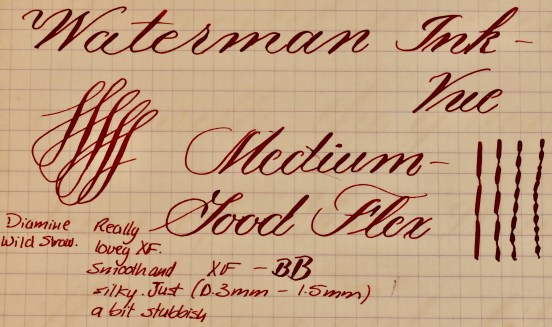 Waterman Ink-
Vue
Medium-
Good Flex
Diamine
Wild Straw.
Really
lovely XF.
Smooth and
silky. Just
a bit stubbish
XF - BB
(0.3mm - 1.5mm)